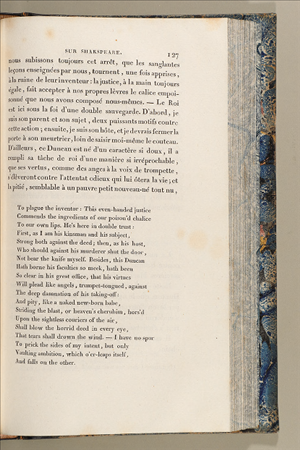 SUR SHAKSPEARE. 127
nous subissons toujours cet arrêt, que les sanglantes
leçons enseignées par nous, tournent, une fois apprises,
à la ruine de leur inventeur : la justice, à la main toujours
égale, fait accepter à nos propres lèvres le calice empoi-
sonné que nous avons composé nous-mêmes. — Le Roi
est ici sous la foi d'une double sauvegarde. D'abord, je
suis son parent et son sujet, deux puissants motifs contre
cette action ; ensuite, je suis son hôte, et je devrais fermer la
porte à son meurtrier, loin de saisir moi-même le couteau.
D'ailleurs, ce Duncan est né d'un caractère si doux, il a
rempli sa tâche de roi d'une manière si irréprochable,
que ses vertus, comme des anges à la voix de trompette,
s'élèveront contre l'attentat odieux qui lui ôtera la vie ; et
la pitié, semblable à un pauvre petit nouveau-né tout nu,
To plague the inventor : This even-handed justice
Commends the ingredients of our poison'd chalice
To our own lips. He's here in double trust :
First, as I am his kinsman and his subject,
Strong both against the deed ; then, as his host,
Who should against his murderer shut the door,
Not bear the knife myself. Besides, this Duncan
Hath borne his faculties so meek, hath been
So clear in his great office, that his virtues
Will plead like angels, trumpet-tongued, against
The deep damnation of his taking-off :
And pity, like a naked new-born babe,
Striding the blast, or heaven's cherubim, hors'd
Upon the sightless couriers of the air,
Shall blow the horrid deed in every eye,
That tears shall drown the wind. — I have no spur
To prick the sides of my intent, but only
Vaulting ambition, which o'er-leaps itself,
And falls on the other.